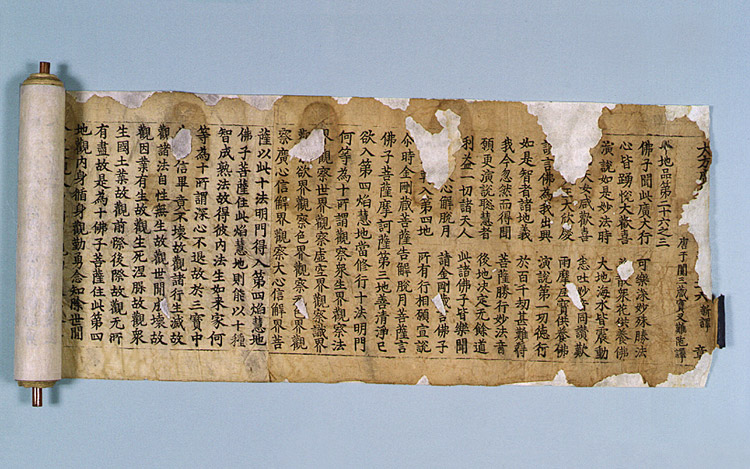 大方 六 新譯 章
唐于闐三藏實叉難陀譯
地品第二十六之三
佛子聞此廣大行 可樂深妙殊勝法
心皆勇悅大歡喜 散眾花供養佛
演說如是妙法時 大地海水皆震動
天女咸歡喜 悉吐妙音同讚歎
天王大欣慶 雨摩尼寶供養佛
言佛為我出興 演說第一功德行
如是智者諸地義 於百千劫甚難得
我今忽然而得聞 菩薩勝行妙法音
願更演說聰慧者 後地決定无餘道
利益一切諸天人 此諸佛子皆樂聞
心解脫月 請金剛藏言佛子
入第四地 所有行相願宣說
尒時金剛藏菩薩告解脫月菩薩言
佛子菩薩摩訶薩第三地善清淨已
欲入第四焰慧地當修行十法明門
何等為十所謂觀察眾生界觀察法
界觀察世界觀察虛空界觀察識界
觀察欲界觀察色界觀察无色界觀
察廣心信解界觀察大心信解界菩
薩以此十法明門得入第四焰慧地
佛子菩薩住此焰慧地則能以十種
智成熟法故得彼內法生如來家何
等為十所謂深心不退故於三寶中
生信畢竟不壞故觀諸行生滅故
觀諸法自性无生故觀世間成壞故
觀因業有生故觀生死涅槃故觀眾
生國土業故觀前際後際故觀无所
有盡故是為十佛子菩薩住此第四
地觀內身循身觀勤勇念知除世間